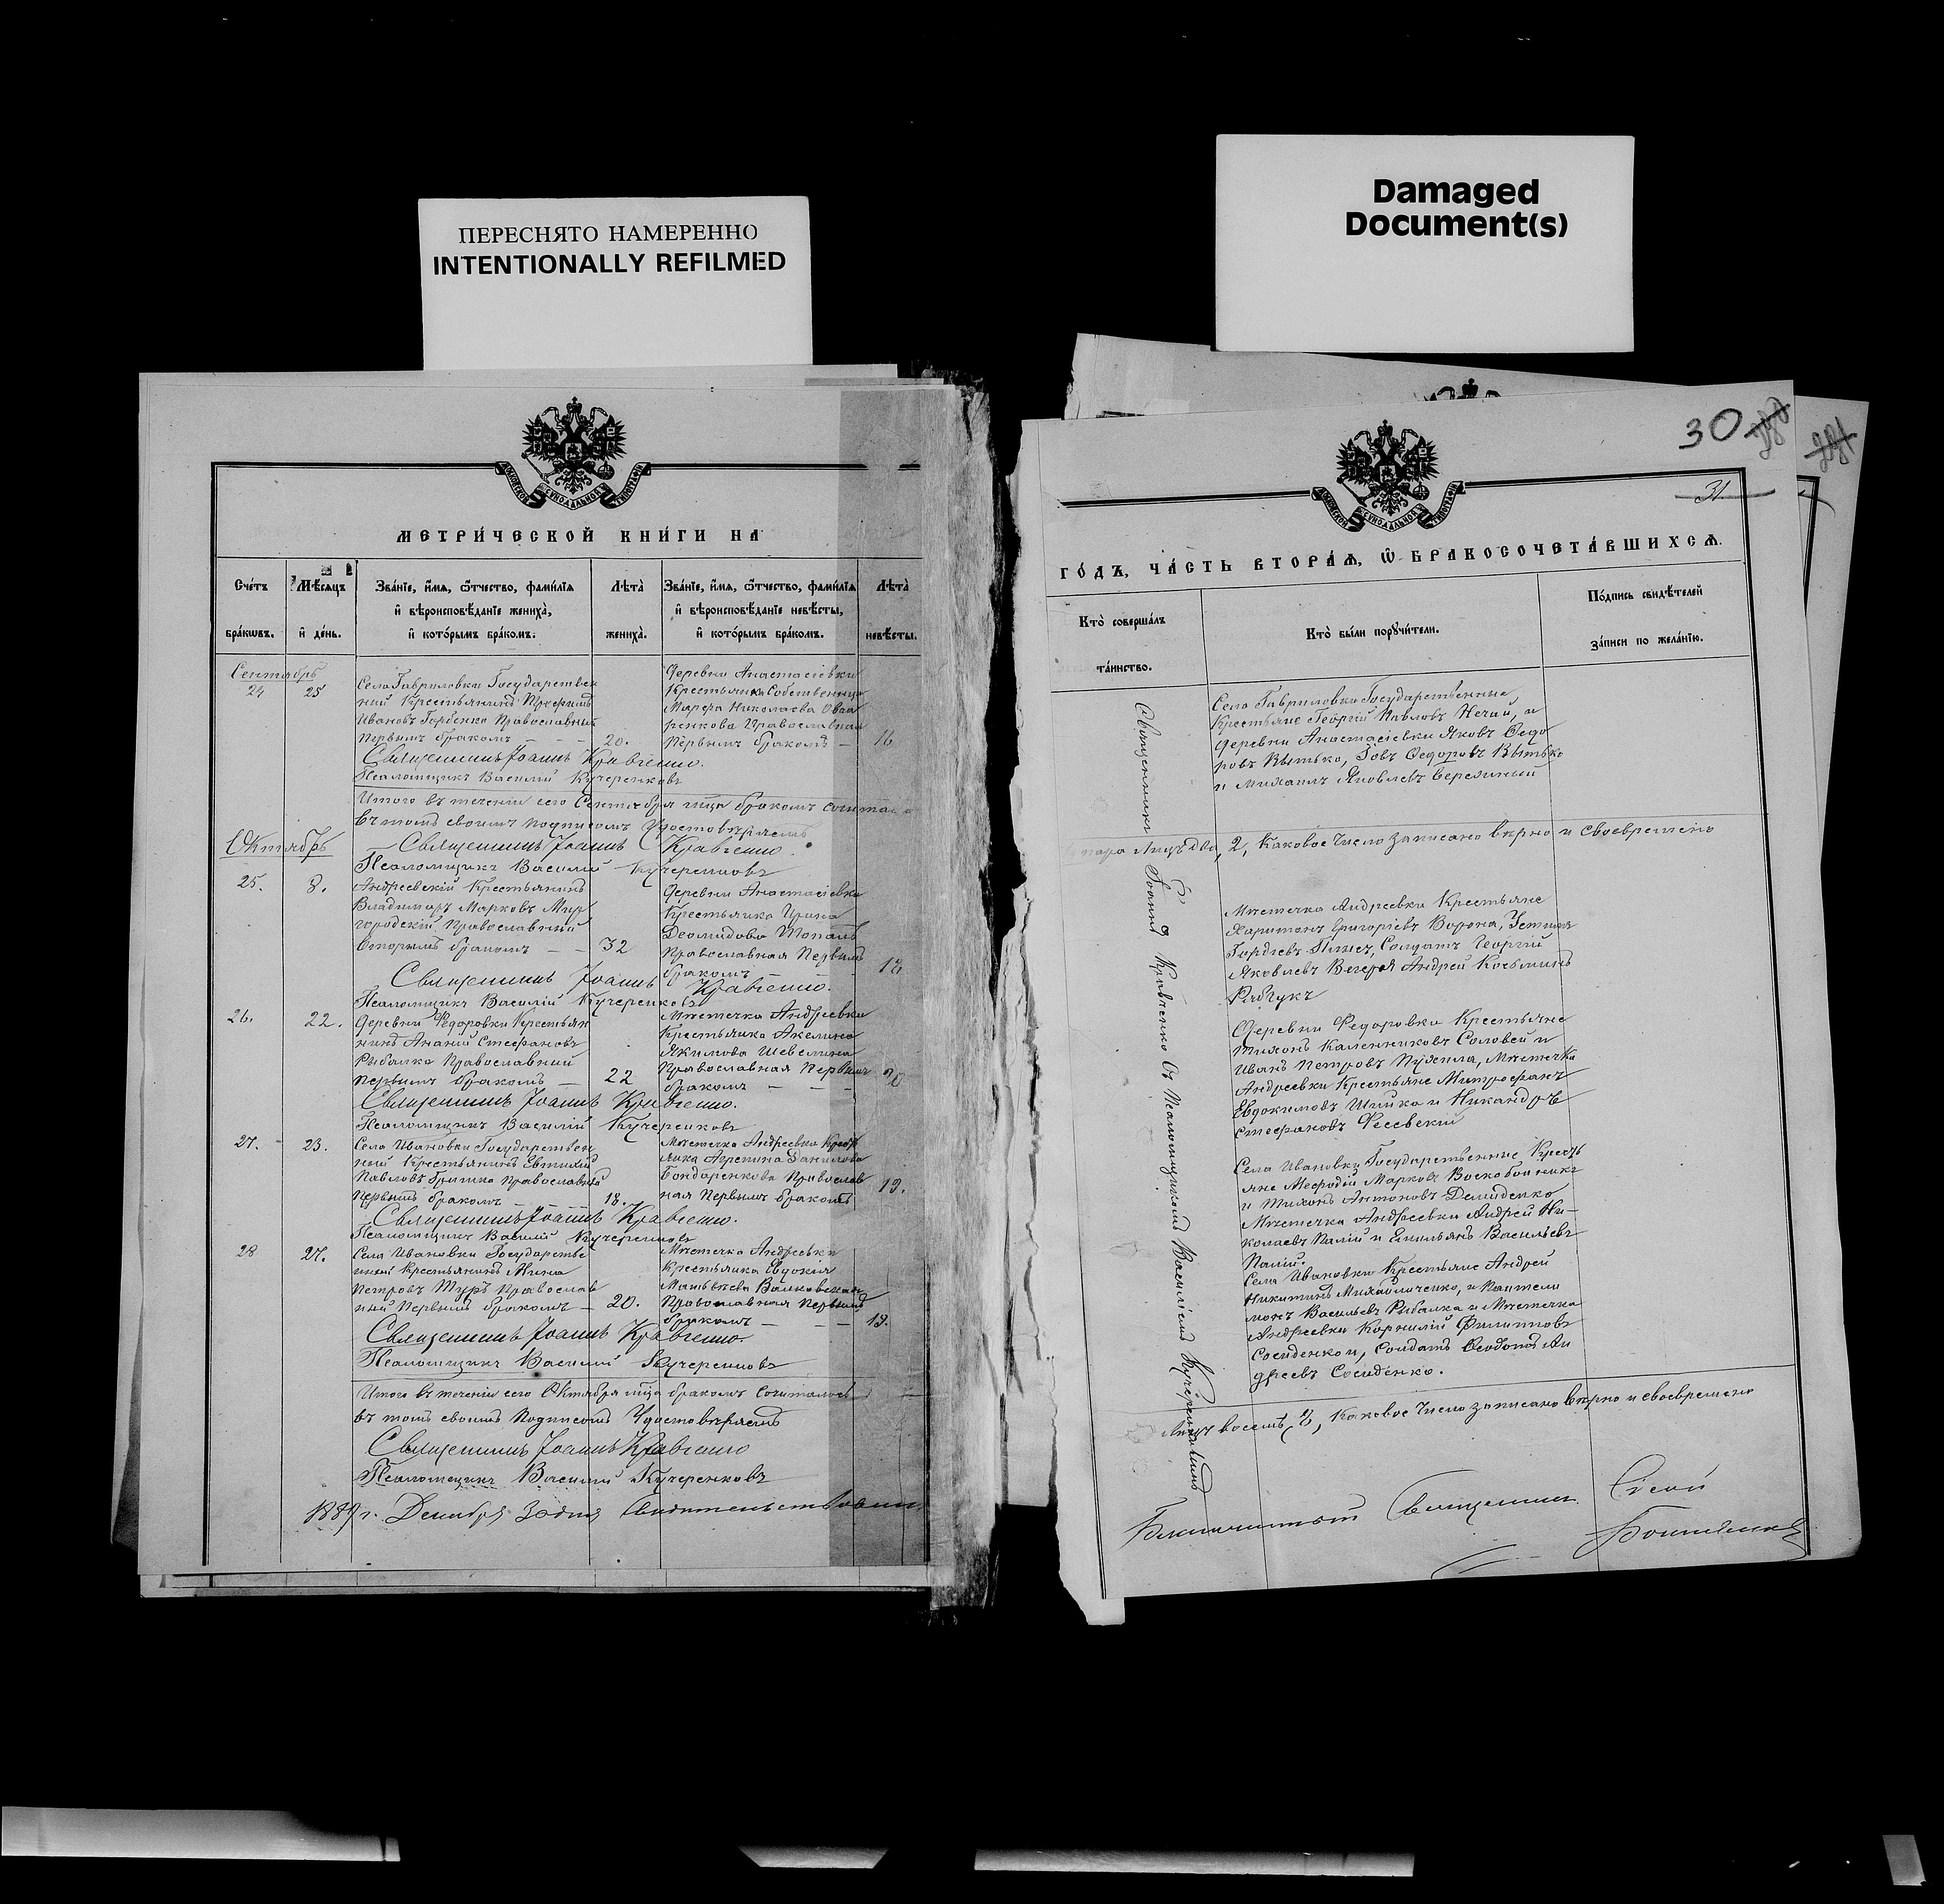 ПЕРЕСНЯТО НАМЕРЕННО
INTENTIONALLY REFILMED
Damaged
Document(s)
МЕТРИ́ЧЕСКОЙ КНИ́ГИ НА
Сче́тъ бра́кѡвъ.
Мѣ́сѧцъ и҆ де́нь.
Зва́нїе, и҆́мѧ, ѻ҆́тчество, фами́лїѧ
и҆ вѣроисповѣ́данїе жениха̀,
и҆ кото́рымъ бра́комъ.
Лѣта̀ жениха̀.
Зва́нїе, и҆́мѧ, ѻ҆́тчество, фами́лїѧ
и҆ вѣроисповѣ́данїе невѣ́сты,
и҆ кото́рымъ бра́комъ.
Лѣта̀ невѣ́сты.
Сентябрь
24
25
Села Гавриловки Государствен
ный Крестьянинъ
Ивановъ Горбенко Православный
первымъ бракомъ
20.
Деревни Анастасіевки
Крестьянка Собственница
Марѳа Николаева
Православная
первымъ бракомъ
16
Священникъ Іоаннъ Кравченко.
Псаломщикъ Василій Кучеренковъ
Итого въ теченіи сего Сентября м-ца бракомъ
въ томъ своимъ подписомъ удостовѣряемъ
Священникъ Іоаннъ Кравченко.
Псаломщикъ Василій Кучеренковъ
Октябрь
25.
8.
Андреевскій Крестьянинъ
Владиміръ Марковъ Мир
городскій Православный
Вторымъ бракомъ
32
Деревни Анастасіевки
Крестьянка Ирина
Діомидова
Православная Первымъ
бракомъ
Священникъ Іоаннъ Кравченко.
Псаломщикъ Василій Кучеренковъ
26.
22.
Деревни Федоровки Крестьян
нинъ Ананій Стефановъ
Рыбалка Православный
первымъ бракомъ
22
Мѣстечка Андреевки
Крестьянка Акелина
Якимова
Православная Первымъ
бракомъ
20
Священникъ Іоаннъ Кравченко.
Псаломщикъ Василій Кучеренковъ
27.
23.
Села Ивановки Государствен
ный Крестьянинъ Евтихій
Павловъ Гришко Православный
Первымъ бракомъ
18.
Мѣстечка Андреевки Кресть
янка Агрепина Данилова
Бондаренкова Православ
ная Первымъ бракомъ
19.
Священникъ Іоаннъ Кравченко.
Псаломщикъ Василій Кучеренковъ
28
27.
Села Ивановки Государстве
нный Крестьянинъ Мина
Петровъ Туръ Православ
ный Первымъ бракомъ
20.
Мѣстечка Андреевки
Крестьянка Евдокія
Матвѣева
Православная Первымъ
бракомъ
19.
Священникъ Іоаннъ Кравченко.
Псаломщикъ Василій Кучеренковъ
Итого въ теченіи сего Октября м-ца бракомъ Сочиталось
въ томъ своимъ Подписомъ Удостовѣряемъ
Священникъ Іоаннъ Кравченко
Псаломщикъ Василій Кучеренковъ
Декабря 30 дня свидетельствовалъ
30
31
ГО́ДЪ, ЧА́СТЬ ВТОРА́Ѧ, Ѡ҆ БРАКОСОЧЕТА́ВШИХСѦ.
Кто̀ соверша́лъ та́инство.
Кто̀ бы́ли порꙋчи́тели.
По́дпись свидѣ́телей
за́писи по жела́нїю.
Села Гавриловки Государственные
Крестьяне Георгій Павловъ Нечай, и
деревни Анастасіевки Яковъ Ѳедо
ровъ Вытько, Іовъ Ѳедоровъ Вытько
и Михаилъ Яковлевъ
пара Лицъ два, 2, Каковое Число записано вѣрно и своевремено
Мѣстечка Андреевки Крестьяне
Харитонъ Григоріевъ Ворона,
Гордіевъ Солдатъ Георгій
Яковлевъ Андрей Косьминъ
Рябчукъ
Деревни Федоровки Крестьяне
Тихонъ Каленниковъ Соловей и
Иванъ Петровъ Мѣстечка
Андреевки Крестьяне Митрофанъ
Евдокимовъ Шийка и Никандръ
Стефановъ
Села Ивановки Государственные Кресть
яне Меѳодій Марковъ Воскобойникъ
и Тихонъ Антоновъ Демиденко
Мѣстечка Андреевки Андрей Ни-
колаевъ Палій и Емильянъ Васильевъ
Палій.
Села Ивановки Крестьяне Андрей
Никитинъ Михайличенко, и Пантели
монъ Васильевъ Рыбалка и Мѣстечка
Андреевки Корнилій Филиповъ
Сосиденко и, Солдатъ Ѳеодотъ Ан
дреевъ Сосиденко.
Лицъ восемь, 8, Каковое Число записано вѣрно и своевремено
Священникъ Іоаннъ Кравченко Съ Псаломщикомъ Василіемъ Кучеренковымъ
Благочинный Священникъ